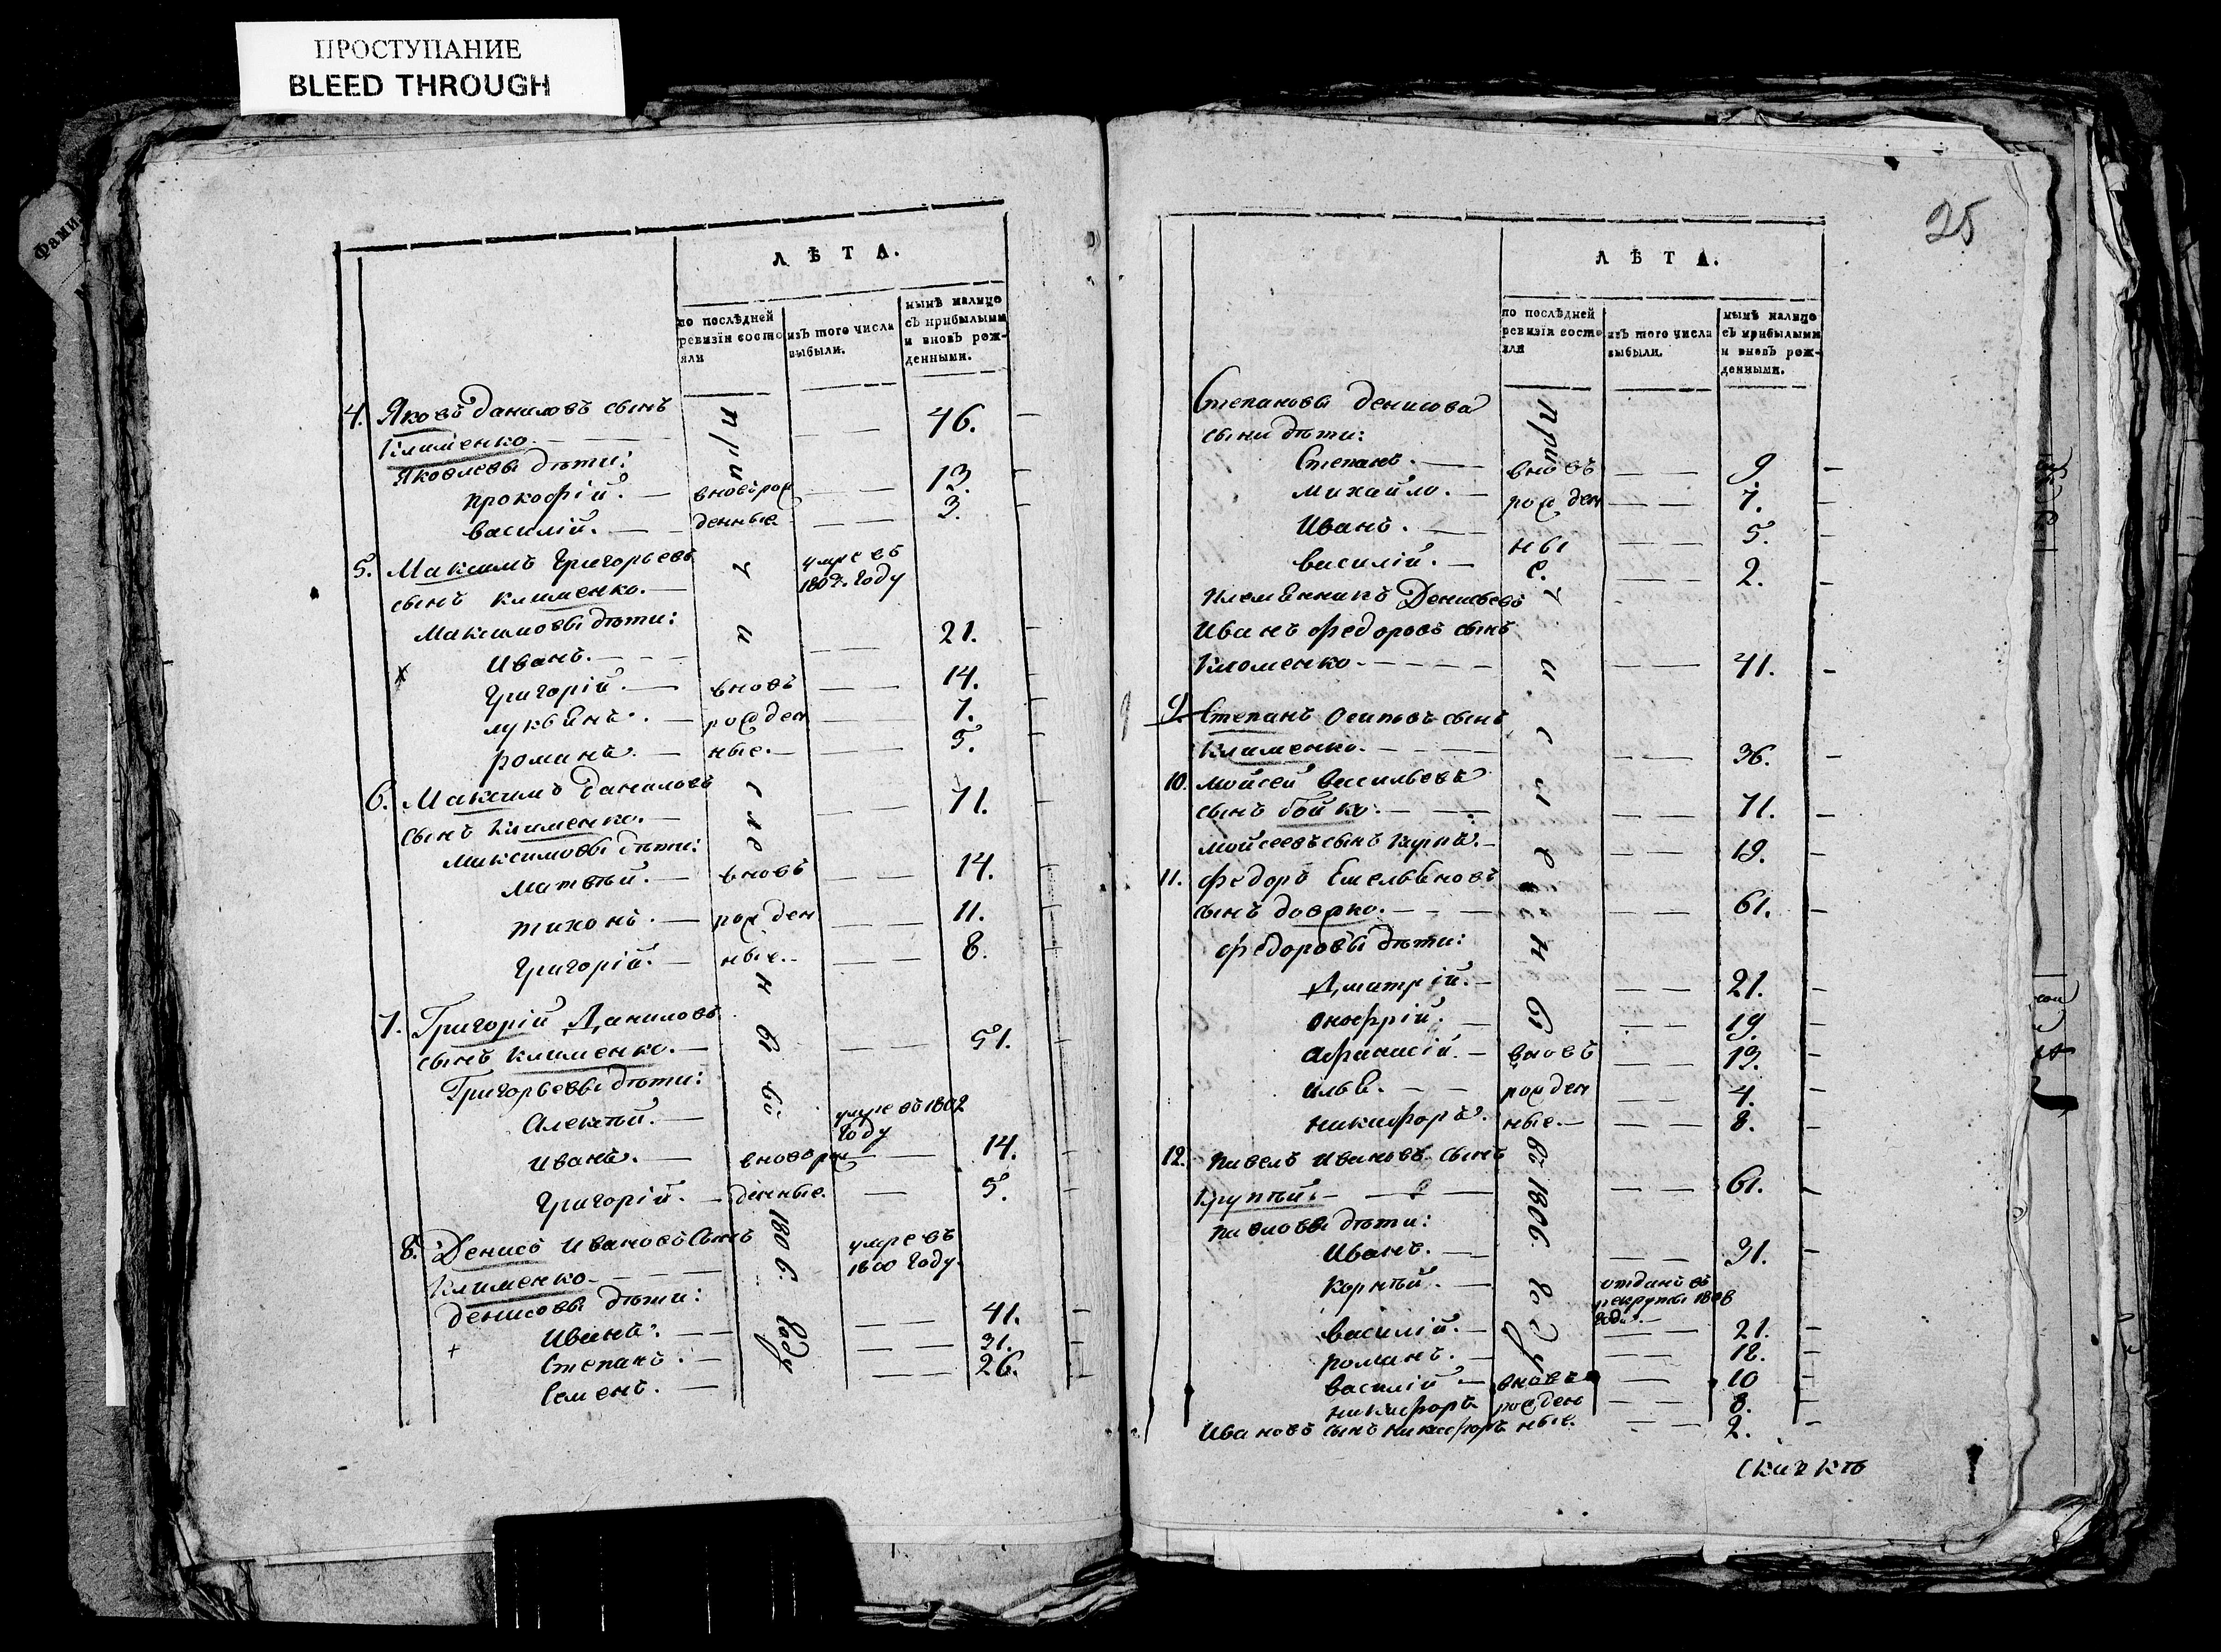 ПРОСТУПАНИЕ
BLEED THROUGH
Фами
ЛѢТА.
по послѣдней ревизіи состояли
изъ того числа выбыли.
нынѣ налицо съ прибылыми и вновь рожденными.
4. Яковъ Даниловъ сынъ
Клименко. 46.
Яковлевы дѣти:
Прокофій. вноврож 13.
Василій. денные 3.
5. Максимъ Григорьевъ умре въ
сынъ Клименко. 1802. году
Максимовы дѣти:
Иванъ. 21.
Григорій. вновь 14.
Лукьянъ. рожден 7.
Романъ. ные. 5.
6. Максимъ Даниловъ
сынъ Клименко. 71.
Максимовы дѣти:
Матвѣй. вновь 14.
Тихонъ. рожден 11.
Григорій. ные. 8.
7. Григорій Даниловъ
сынъ Клименко. 51.
Григорьевы дѣти:
Алексѣй. умре въ 1802 году
Иванъ. вноврож 14.
Григорій. денные. 5.
8. Денисъ Ивановъ сынъ умре въ
Клименко. 1800 году.
Денисовы дѣти:
Иванъ. 41.
Степанъ. 31.
Семенъ. 26.
причислены въ 1806 году
25
ЛѢТА.
по послѣдней ревизіи состояли
изъ того числа выбыли.
нынѣ налицо съ прибылыми и вновь рожденными.
Степановы Денисова
сына дѣти:
Степанъ. вновь 9.
Михайло. рожден 7.
Иванъ. ны 5.
Василій. е. 2.
Племянникъ Денисовъ
Иванъ Федоровъ сынъ
Клименко. 41.
9. Степанъ Осиповъ сынъ
Клименко. 36.
10. Мойсей Васильевъ
сынъ Бойко. 71.
Мойсеевъ сынъ 19.
11. Федоръ Емельяновъ
сынъ 61.
Федоровы дѣти:
Дмитрій. 21.
Онофрій. 19.
Афанасій. вновь 13.
Илья. рожден 4.
Никифоръ. ные. 8.
12. Павелъ Ивановъ сынъ
61.
Павловы дѣти:
Иванъ. 31.
Корнѣй. отданъ въ рекруты 1808 году.
Василій. 21.
Романъ. 18.
Василій вновь 10
Никифоръ рожден 8.
Ивановъ сынъ Никифоръ ные. 2.
причислены въ 1806 году